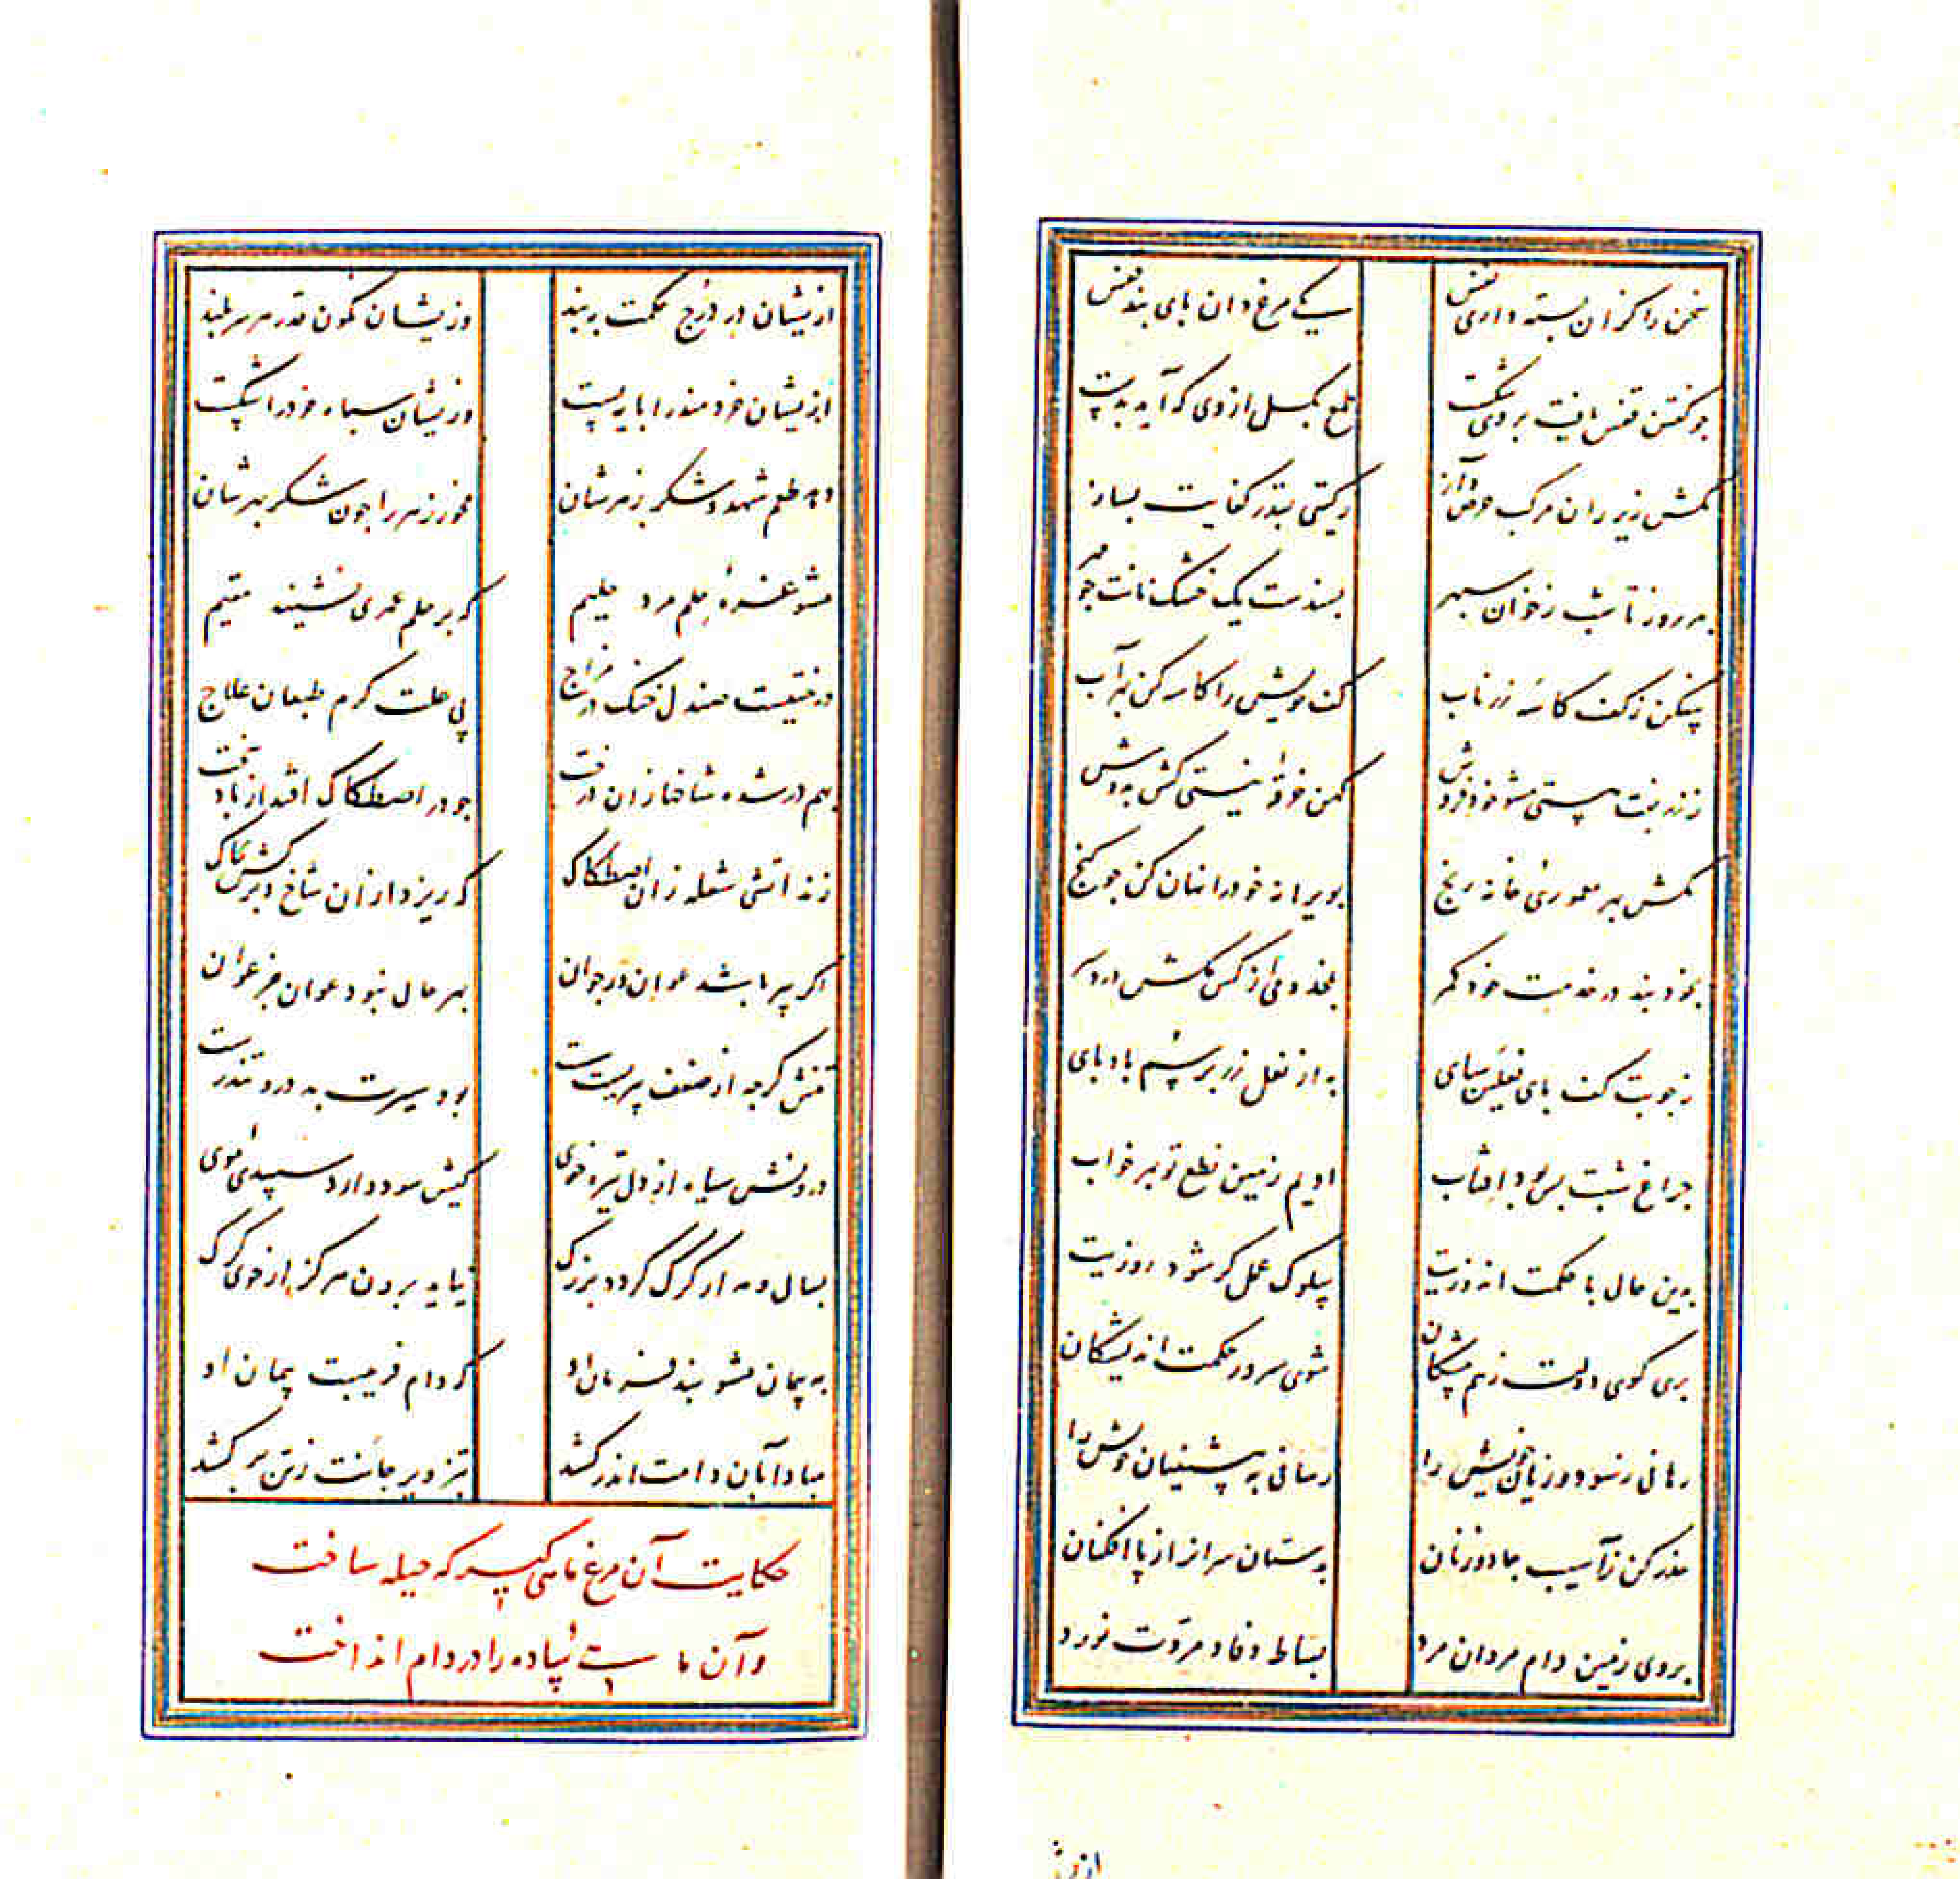 سخن را کزان بسته داری نفس
یکی مرغ دان پای بند قفس
چو گفتن قفس یافت بر وی شکست
طمع بگسل از وی که آید بدست
مکش زیر ران مرکب حرص و آز
ز گیتی بقدر کفایت بساز
بهر روز تا شب ز خوان سپهر
بسندست یک خشک نانت چو مهر
بیفکن ز کف کاسه زر ناب
کف خویش را کاسه کن بهر آب
مکن خرقه نیستی کش به دوش
مکش بهر معموری خانه رنج
بویرانه خود را نهان کن چو گنج
بخود بند در خدمت خود کمر
بمخدومی از کس مکش درد سر
ز چوبت کف پای نعلین سای
به از نعل زر بر سم بادپای
چراغ شبت بس بود آفتاب
ادیم زمین نطع تو بهر خواب
بدین حال با حکمت اندوزیت
سلوک عمل گر شود روزیت
بری گوی دولت ز هم پیشگان
شوی سرور حکمت اندیشگان
رهانی ز سود و زیان خویش را
رسانی به پیشینیان خویش را
حذر کن ز آسیب جادو زنان
بدستان سرانداز پا افکنان
بروی زمین دام مردان مرد
بساط وفا و مروت نورد
ازیشان در درج حکمت ببند
وزیشان نگون قدر هر سربلند
ازیشان خردمند را پایه پست
وزیشان سپاه خرد را شکست
دهد طعم شهد و شکر زهرشان
مخور زهر را چون شکر بهرشان
مشو غره حلم مرد حلیم
که بر حلم عمری نشیند مقیم
درختیست صندل خنک در مزاج
پی علت گرم طبعان علاج
بهم در شده شاخها زان درخت
چو در اصطکاک افتد از باد سخت
زند آتشی شعله زان اصطکاک
که ریزد ازان شاخ و برگش بخاک
اگر پیر باشد عوان ور جوان
بهر حال نبود عوان جز عوان
تنش گرچه از ضعف پیریست سست
بود سیرت بد درو تندرست
درونش سیاه از دل تیره خوی
کیش سود دارد سپیدی موی
بسال و مه ار گرگ گردد بزرگ
نیاید برون هرگز از خوی گرگ
به پیمان مشو بند فرمان او
که دام فریبست پیمان او
مبادا بآن دامت اندر کشد
بتزویر جانت ز تن بر کشد
حکایت آن مرغ ماهی گیر که حیله ساخت
و آن ماهی ساده را در دام انداخت